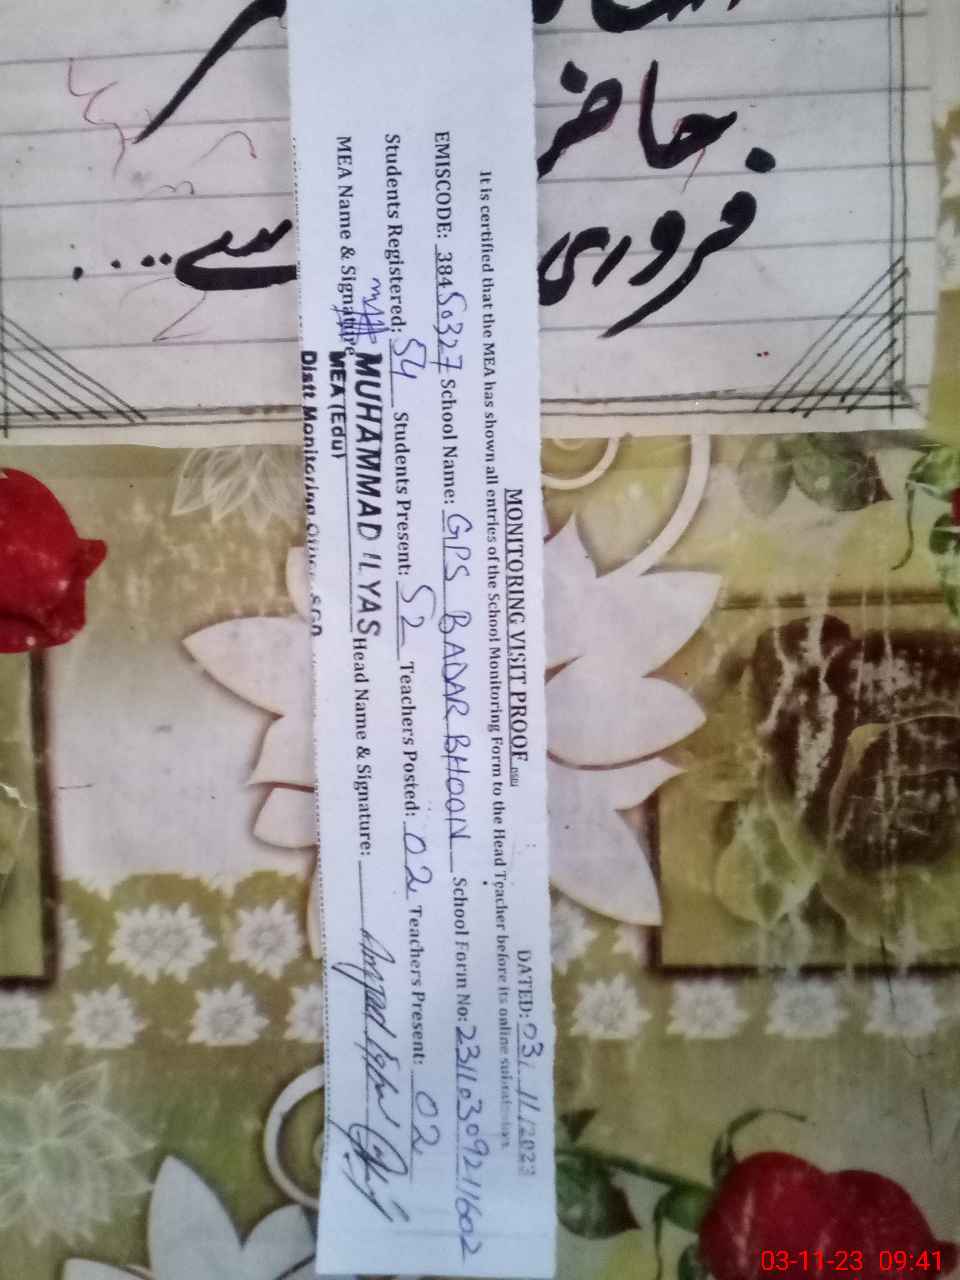 حاضر
فروری سے...
MONITORING VISIT PROOF DATED: 03/11/2023
It is certified that the MEA has shown all entries of the School Monitoring Form to the Head Teacher before its online submission
EMISCODE: 38450327 School Name: GPS BADAR BHOON School Form No: 23110309211602
Students Registered: 54 Students Present: 52 Teachers Posted: 02 Teachers Present: 02
MEA Name & Signature MUHAMMAD ILYAS Head Name & Signature: Amjad Iqbal
MEA (Edu)
Distt Monitoring Officer SGD
03-11-23 09:41